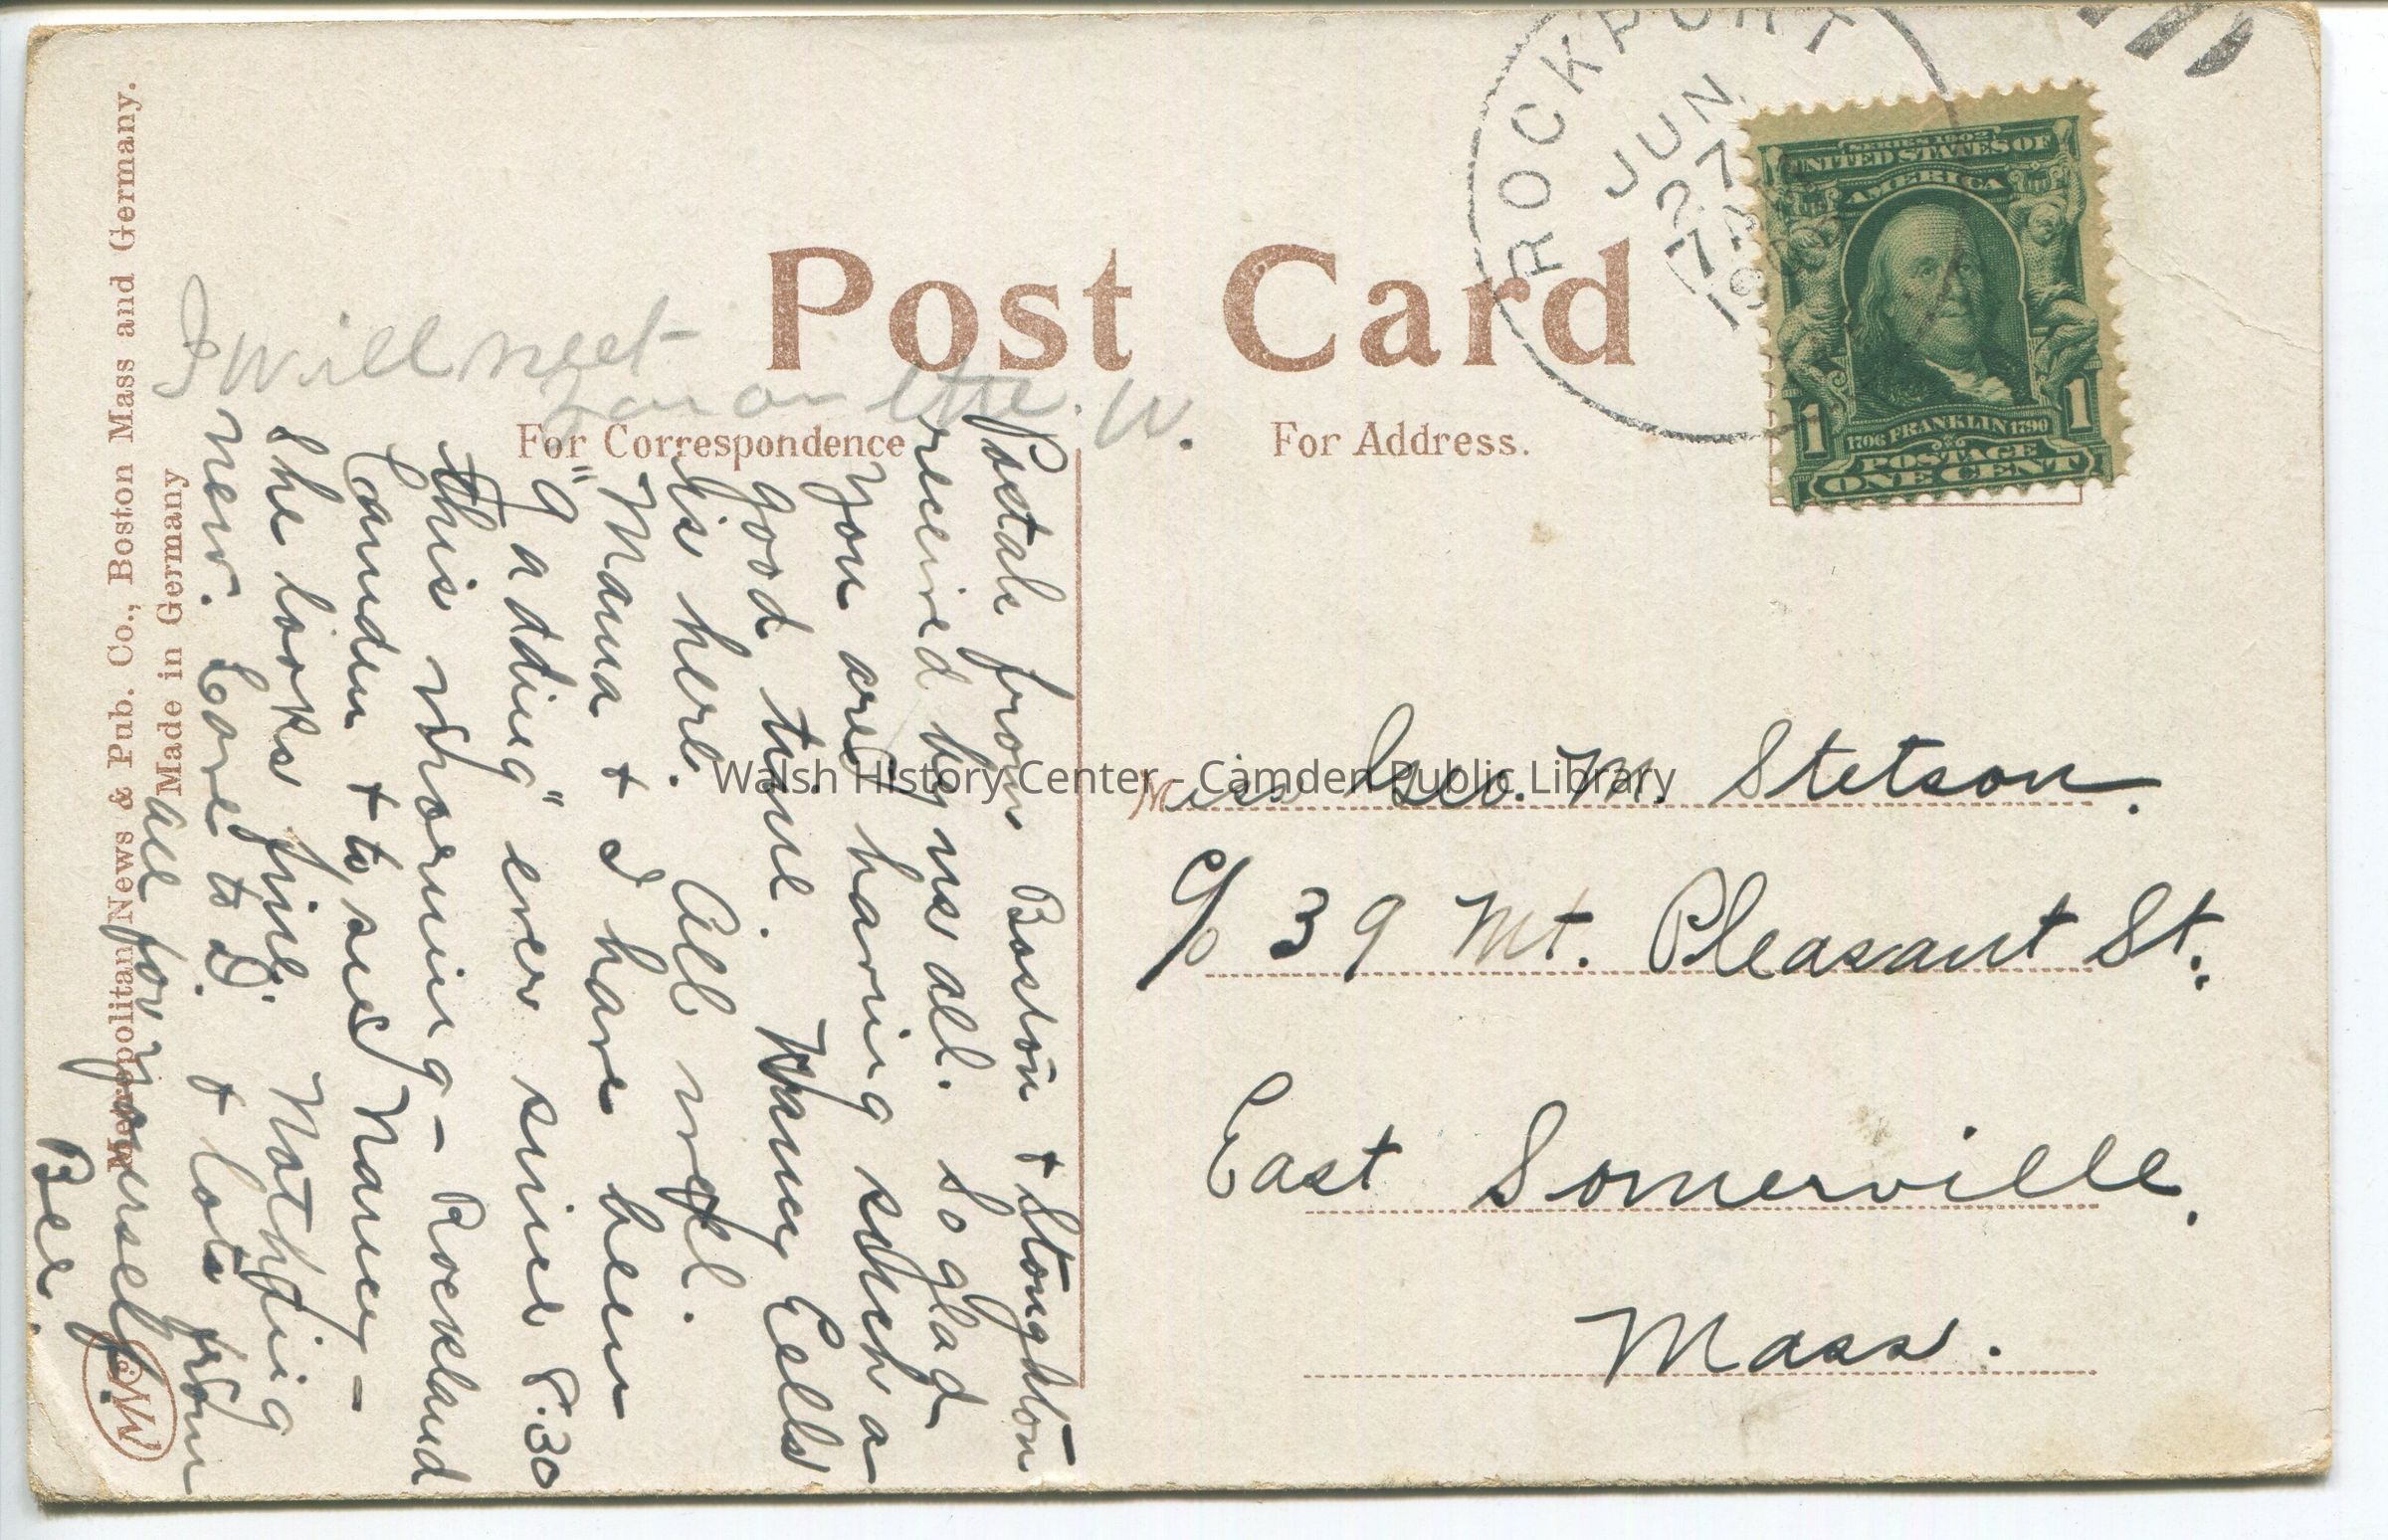 ROCKPORT
JUN
27
7 A
SERIES 1902
UNITED STATES OF
AMERICA
1706 FRANKLIN 1790
POSTAGE
ONE CENT
1 1
Post Card
For Correspondence
For Address.
Metropolitan News & Pub. Co., Boston Mass and Germany.
Made in Germany
I will meet
you on the W.
Postals from Boston + Stoughton
received by us all. So glad
you are having such a
good time. Nancy Eells
is here. All well.
"Mama + I have been
"g adding" ever since 8.30
this morning - Rockland
Camden + to see Nancy -
She looks fine. Nothing
new. Love to D. + lots from
all for yourself.
Bee.
Miss Geo. M. Stetson.
c/o 39 Mt. Pleasant St.,
East Somerville.
Mass.
Walsh History Center - Camden Public Library